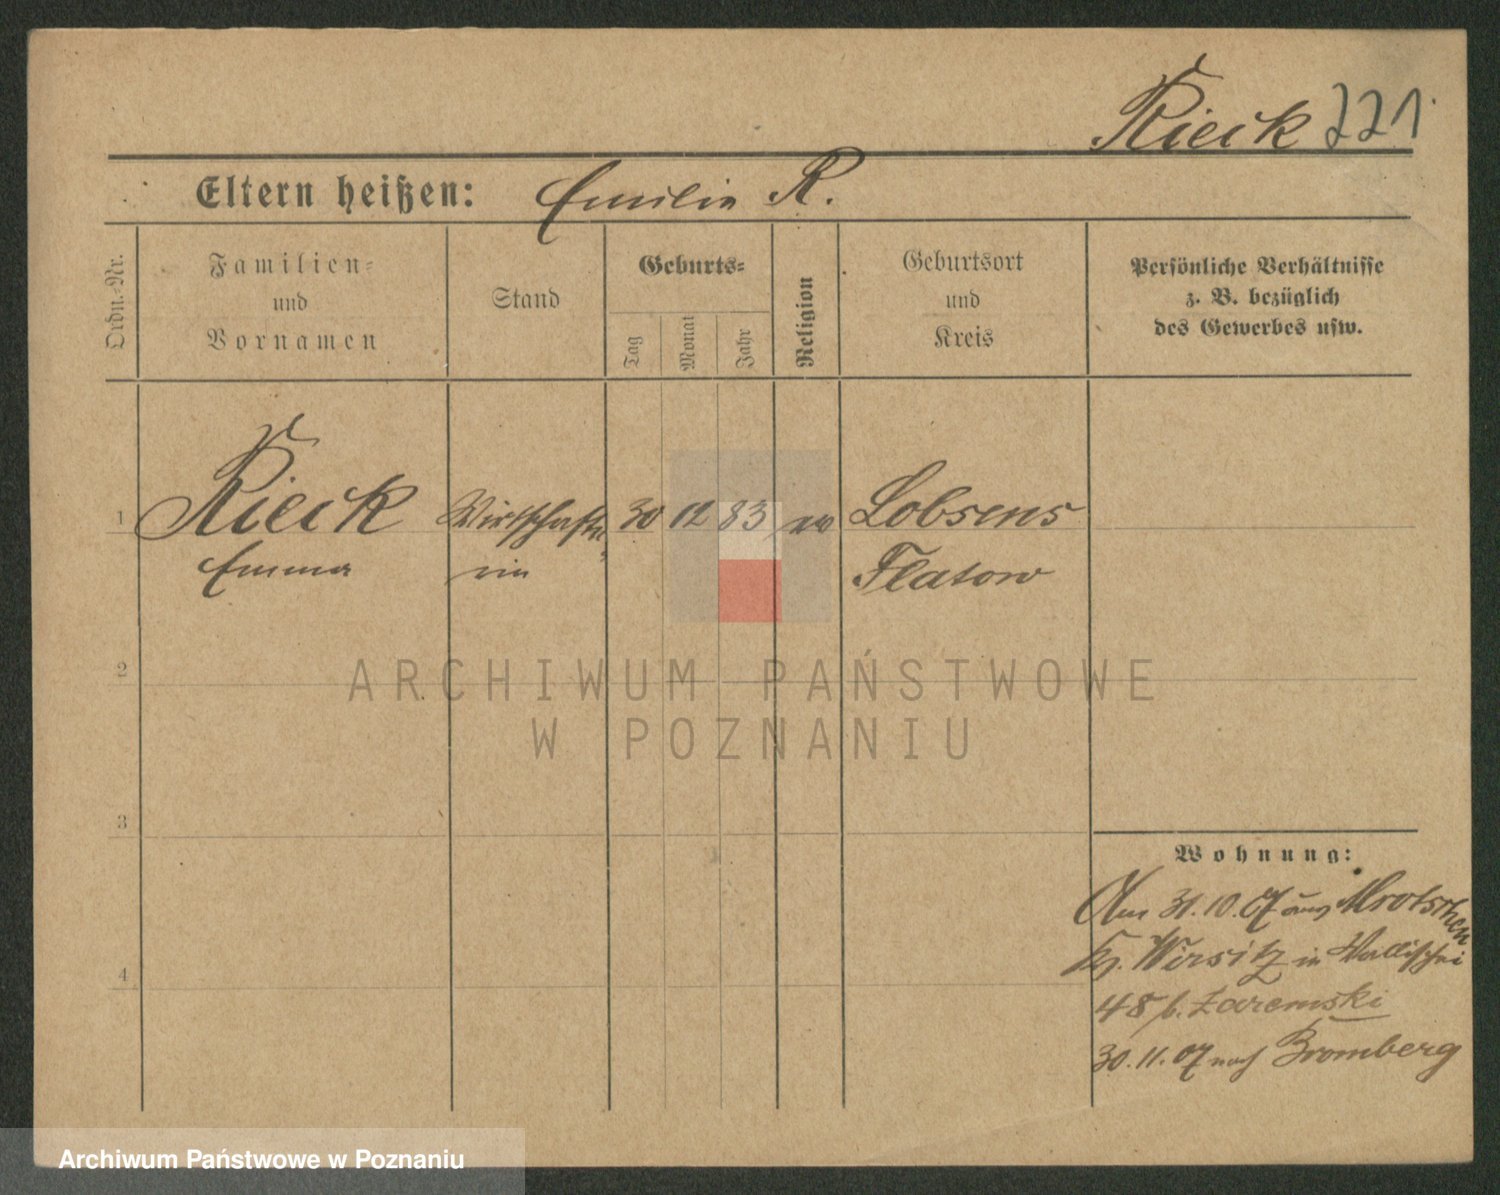 Rieck 221
Eltern heißen: Emilie R.
Ordn.-Nr.
Familien-
und
Vornamen
Stand
Geburts-
Tag
Monat
Jahr
Religion
Geburtsort
und
Kreis
Persönliche Verhältnisse
z. B. bezüglich
des Gewerbes usw.
1 Rieck Wirtschafte- 30 12 83 ev Lobsens
Emma rin Flatow
2
ARCHIWUM PAŃSTWOWE
W POZNANIU
3
Wohnung:
Am 31.10.07 aus Mrotschen
Kr. Wirsitz in Wallischei
4
48 b. Zaremski
30.11.07 nach Bromberg
Archiwum Państwowe w Poznaniu